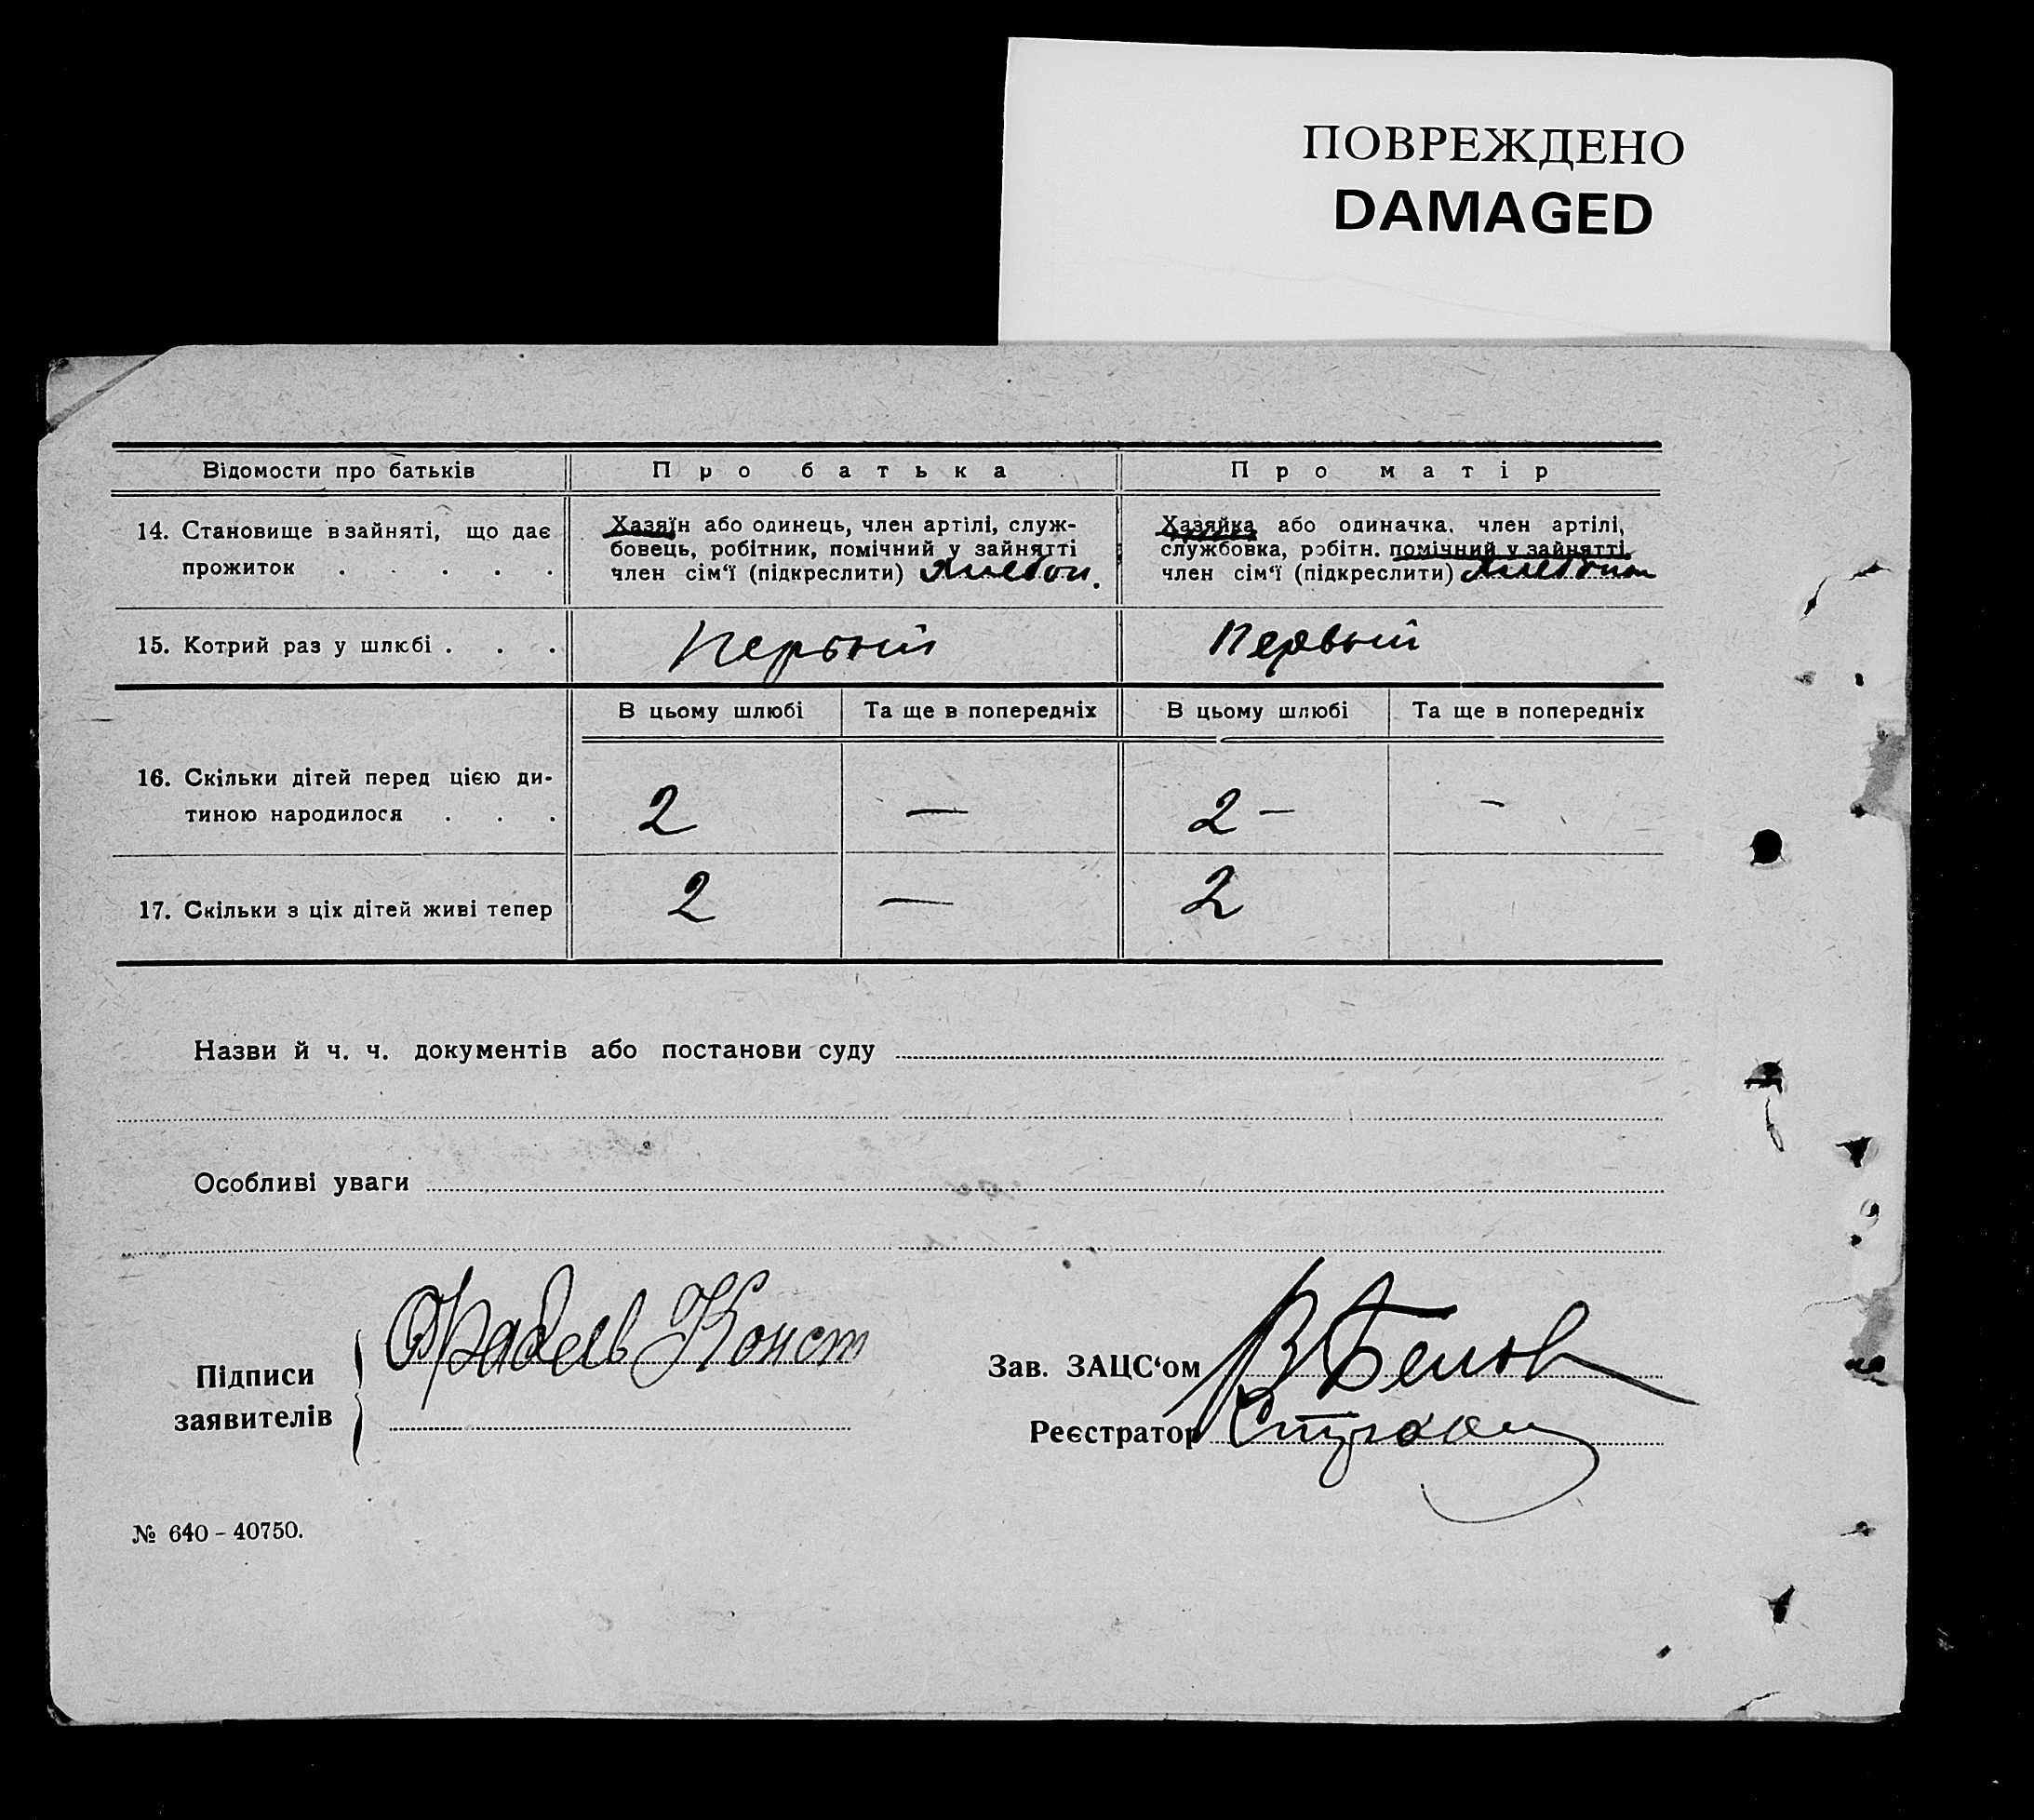 ПОВРЕЖДЕНО
DAMAGED
Відомости про батьків
Про батька
Про матір
14. Становище в зайняті, що дає
прожиток . . . . .
Хазяїн або одинець, член артілі, служ-
бовець, робітник, помічний у зайнятті
член сім'ї (підкреслити)
Хазяйка або одиначка, член артілі,
службовка, робітн. помічний у зайнятті
член сім'ї (підкреслити)
15. Котрий раз у шлюбі . . .
Первый
Первый
В цьому шлюбі
Та ще в попередніх
В цьому шлюбі
Та ще в попередніх
16. Скільки дітей перед цією ди-
тиною народилося . . .
2
—
2 —
-
17. Скільки з ціх дітей живі тепер
2
—
2
Назви й ч. ч. документів або постанови суду
Особливі уваги
Підписи
заявителів
Фрадель Конст
Зав. ЗАЦС'ом
В Белов
Реєстратор
№ 640 - 40750.